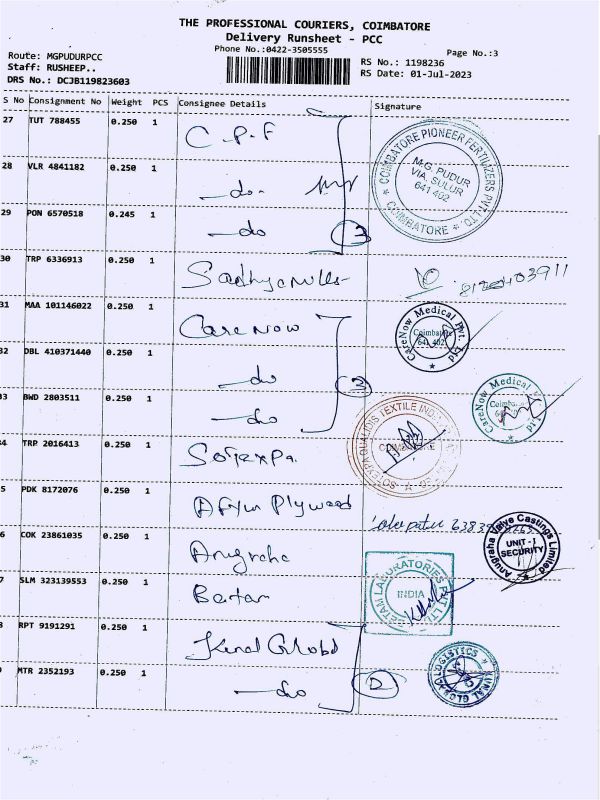 THE PROFESSIONAL COURIERS, COIMBATORE
Delivery Runsheet - PCC
Phone No.:0422-3505555
Page No.:3
Route: MGPUDURPCC
Staff: RUSHEEP..
DRS No.: DCJB119823603
RS No.: 1198236
RS Date: 01-Jul-2023
S No Consignment No Weight PCS Consignee Details Signature
27 TUT 788455 0.250 1 C.P.F
COIMBATORE PIONEER FERTILIZERS PVT. LTD.
M.G. PUDUR
VIA. SULUR
641 402
COIMBATORE
28 VLR 4841182 0.250 1 -do-
29 PON 6570518 0.245 1 -do 3
30 TRP 6336913 0.250 1
31 MAA 101146022 0.250 1 Care Now
CareNow Medical Pvt. Ltd
Coimbatore
641 402
32 DBL 410371440 0.250 1 -do 3
33 BWD 2803511 0.250 1 -do
CareNow Medical Ltd
34 TRP 2016413 0.250 1 Sotexpa
SOTEXPA QUALIDIS TEXTILE
COIMBATORE
5 PDK 8172076 0.250 1 Plywood
6 COK 23861035 0.250 1 Anugraha
Anugraha Valve Castings Limited
UNIT-1
SECURITY
7 SLM 323139553 0.250 1 Bertam
LABORATORIES PVT LTD
INDIA
8 RPT 9191291 0.250 1 Global
MTR 2352193 0.250 1 -do 2
LOGISTICS